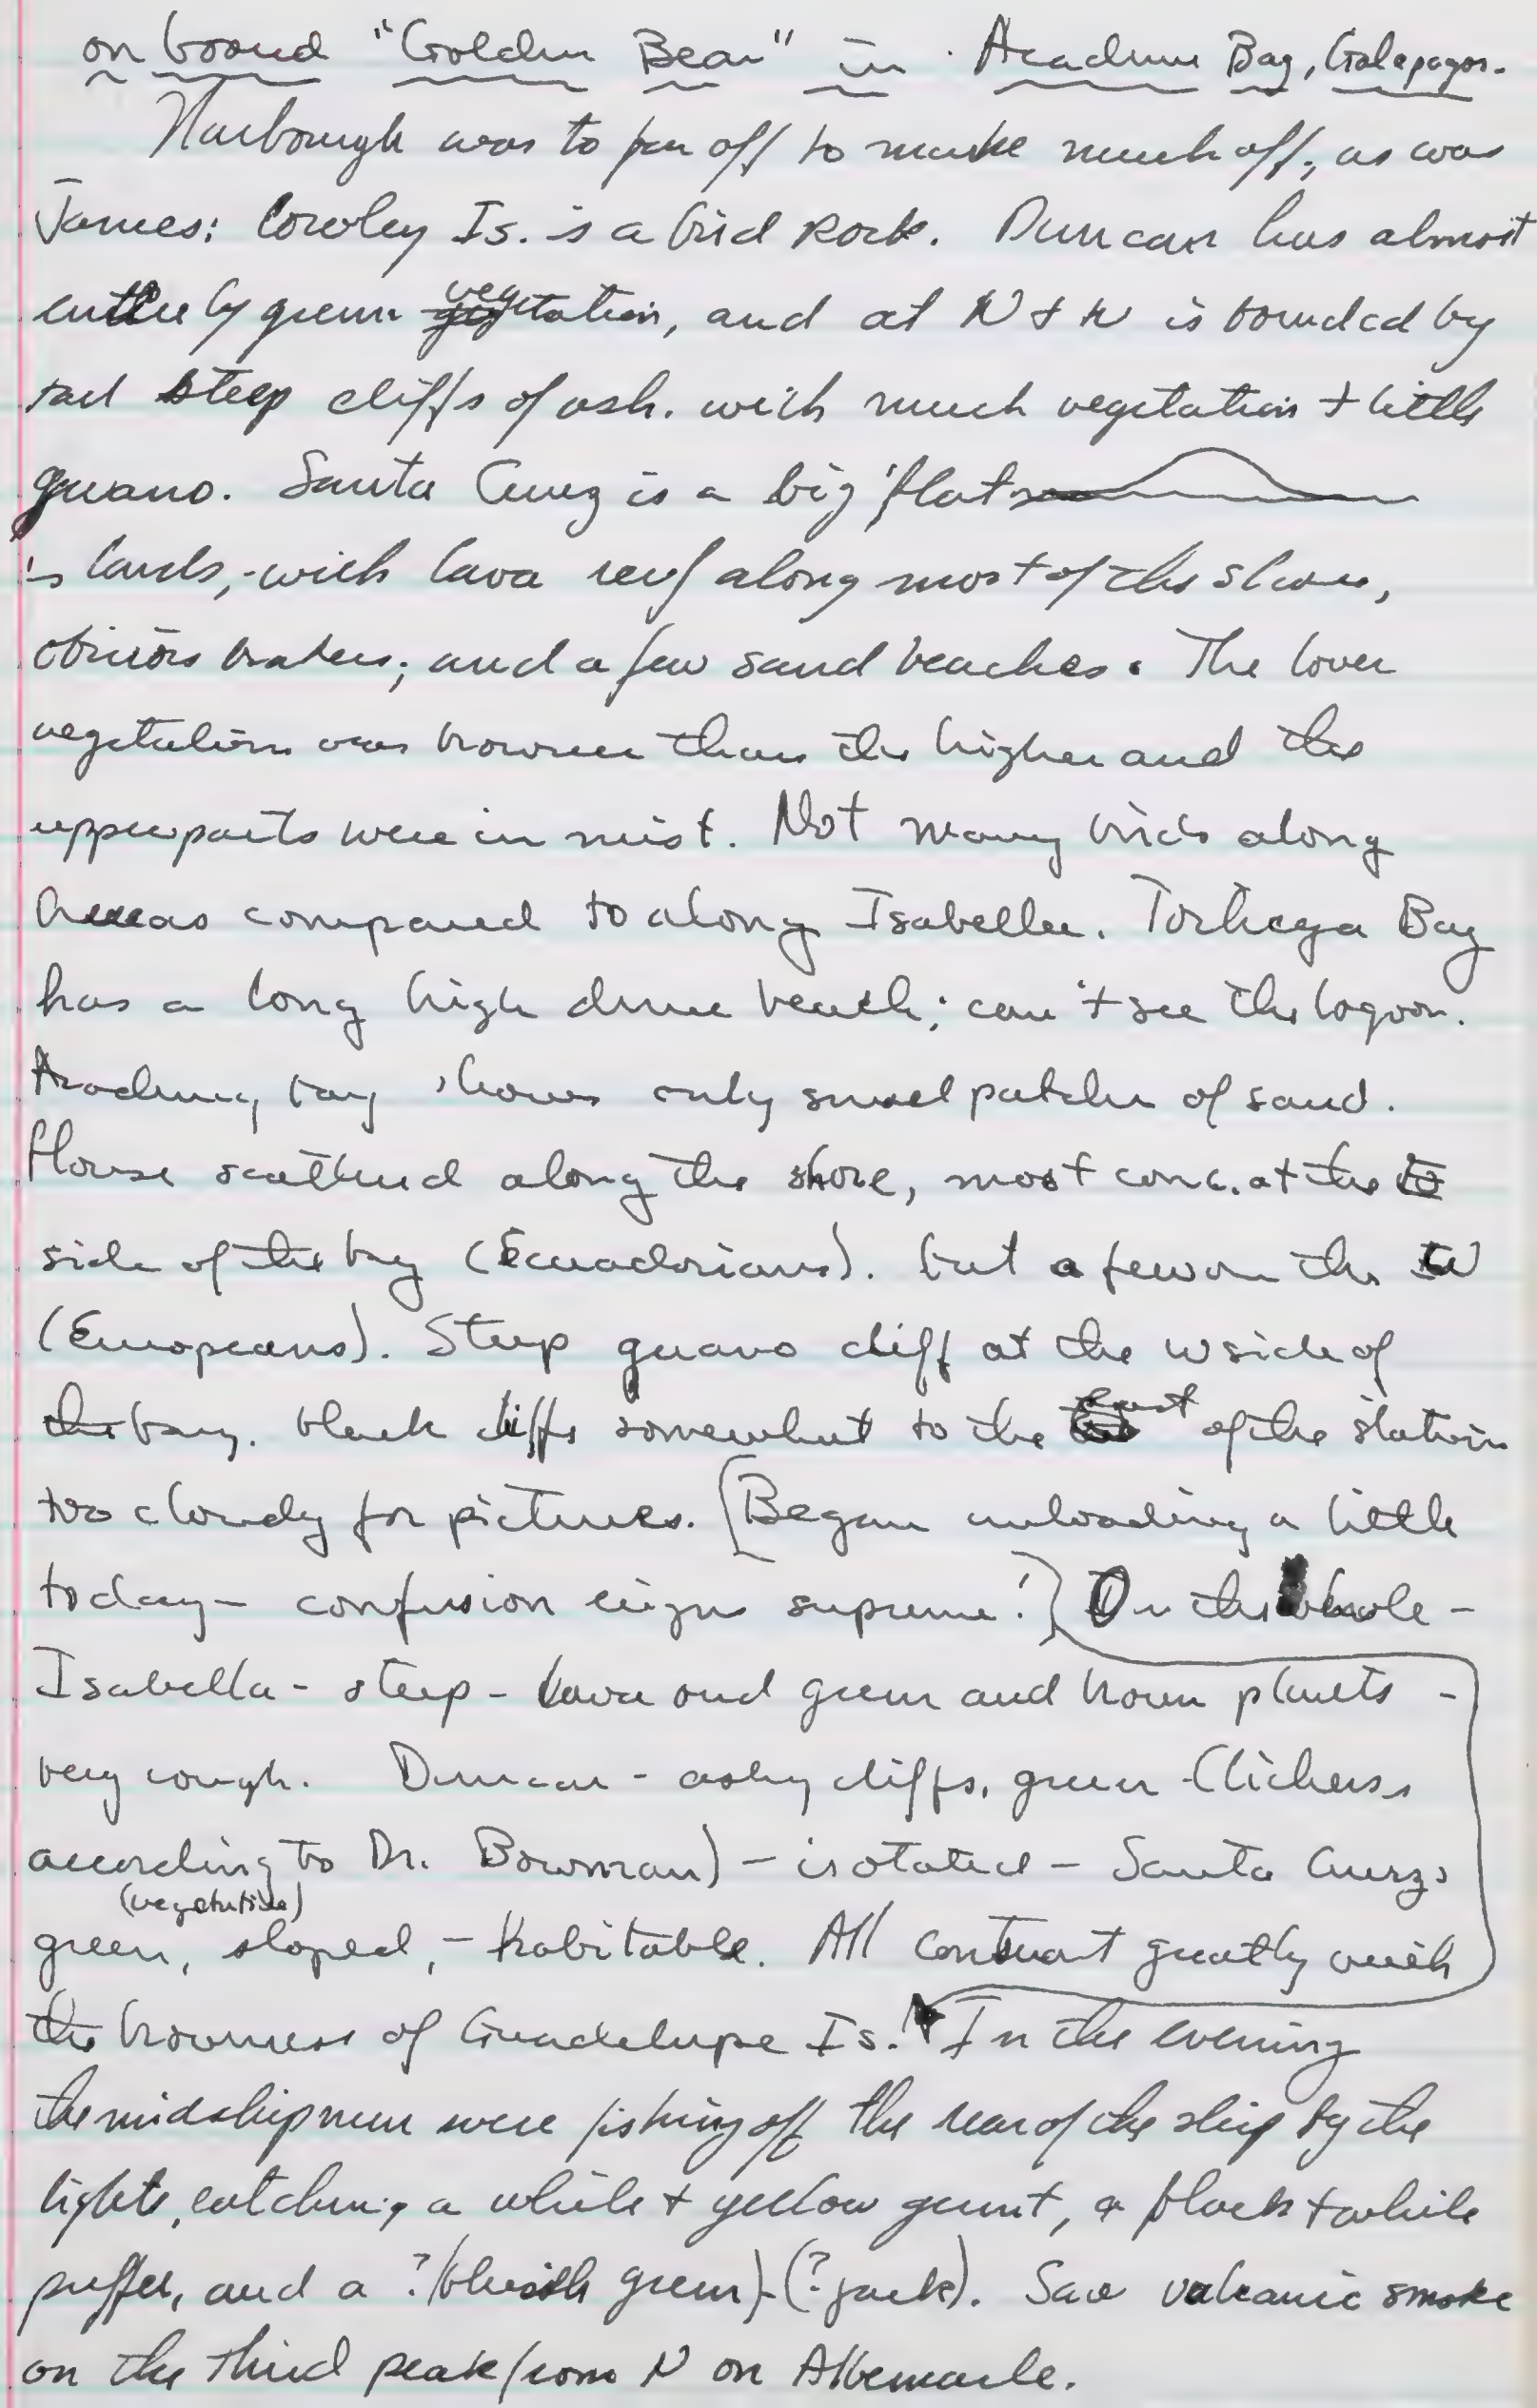 on board "Golden Bear" in Academy Bay, Galapagos.
Narborough was to far off to make much off, as was
James; Cowley Is. is a bird rock. Duncan has almost
entirely green vegetation, and at N + W is bounded by
steep cliffs of ash. with much vegetation + little
guano. Santa Cruz is a big 'flat
islands, - with lava reef along most of the shore,
obvious breakers; and a few sand beaches. The lower
vegetation was browner than the higher and the
upper parts were in mist. Not many birds along
here as compared to along Isabella. Tortuga Bay
has a long high dune beach; can't see the lagoon.
Academy bay shows only small patches of sand.
House scattered along the shore, most conc. at the
side of the bay (Ecuadorians). but a few on the W
(Europeans). Steep guano cliff at the w side of
the bay. black cliffs somewhat to the east of the station
too cloudy for pictures. [Began unloading a little
today - confusion reigns supreme!] On the whole -
Isabella - steep - lava and green and brown plants -
very rough. Duncan - ashy cliffs, green - (lichens
according to Dr. Bowman) - isolated - Santa Cruz,
(vegetation)
green, sloped, - habitable. All contrast greatly with
the browness of Guadelupe Is. In the evening
the midshipmen were fishing off the rear of the ship by the
lights, catching a white + yellow grunt, a black + white
puffer, and a ? (bluish green) - (? jack). Saw volcanic smoke
on the third peak from N on Albemarle.